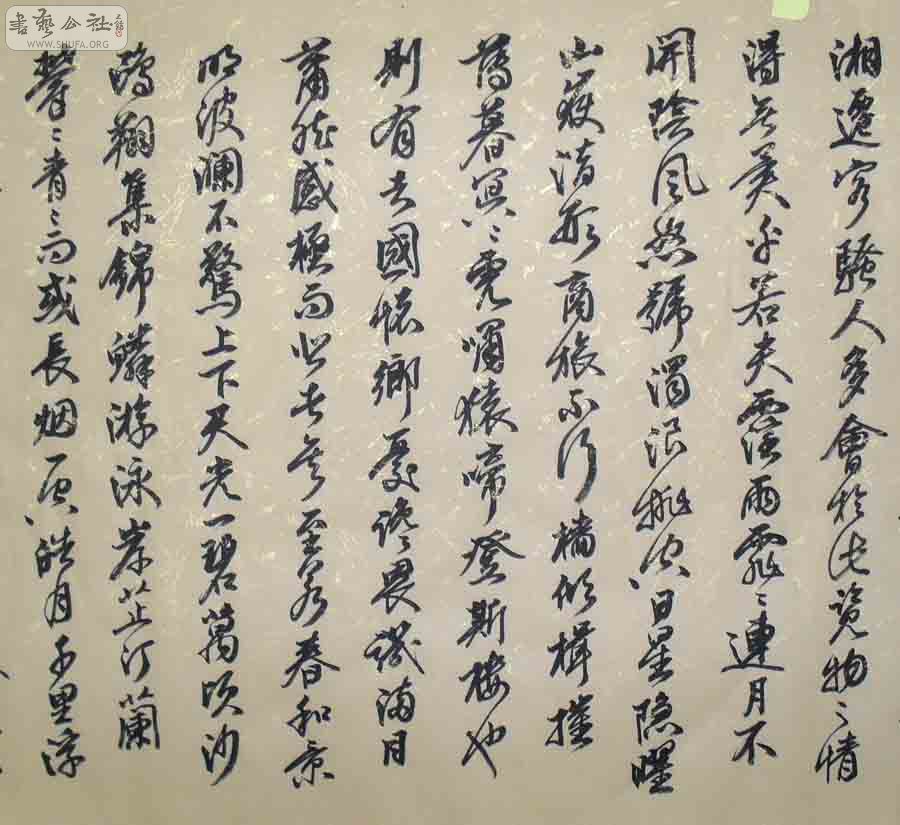 書藝公社
WWW.SHUFA.ORG
湘遷客騷人多會於此覽物之情
得無異乎若夫霪雨霏々連月不
開陰風怒號濁浪排空日星隱曜
山嶽潛形商旅不行檣傾楫摧
薄暮冥々虎嘯猿啼登斯樓也
則有去國懷鄉憂讒畏譏滿目
蕭然感極而悲者矣至若春和景
明波瀾不驚上下天光一碧萬頃沙
鷗翔集錦鱗游泳岸芷汀蘭
鬱々青々而或長烟一空皓月千里浮